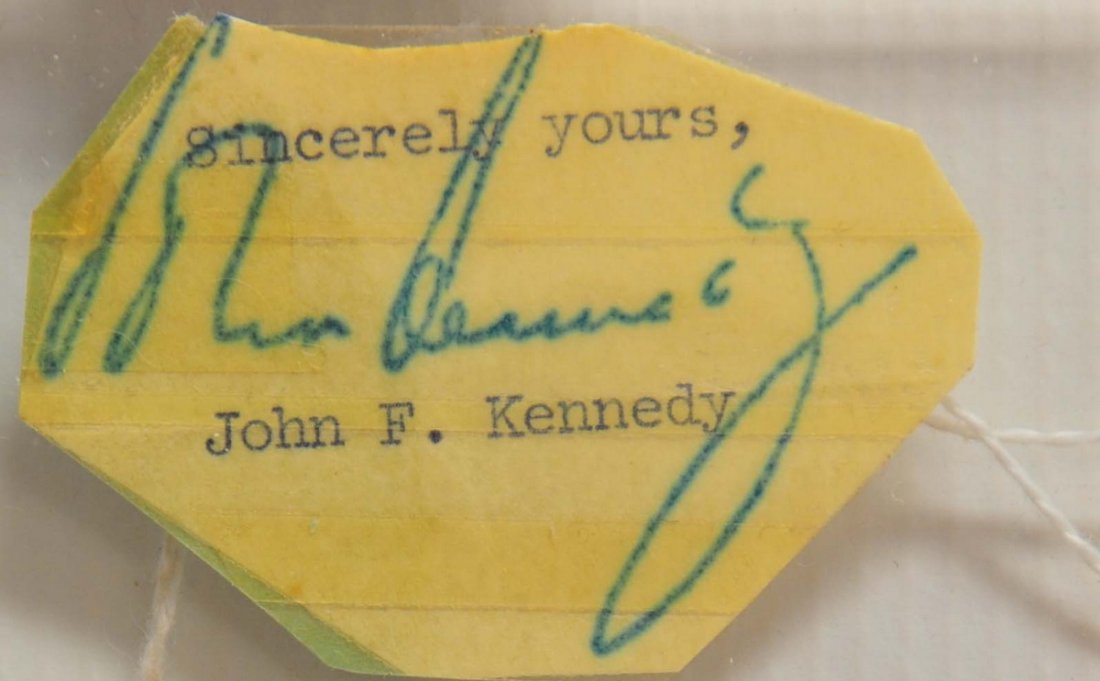 Sincerely yours,
John Kennedy
John F. Kennedy